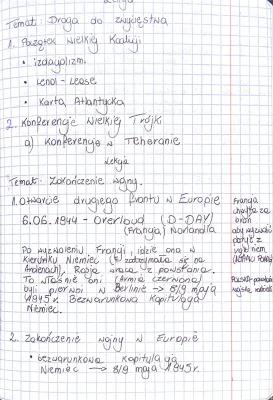 Lekcja
Temat: Droga do zwycięstwa
1. Początek Wielkiej Koalicji
• izolacjonizm
• Lend-Lease
• Karta Atlantycka
2. Konferencje Wielkiej Trójki
a) Konferencja w Teheranie
Lekcja
Temat: Zakończenie wojny.
1. Otwarcie drugiego frontu w Europie
6.06.1944 - Overloud (D-DAY)
(Francja) Normandia
Francja
chwyta za
broń
aby wyzwolić
Paryż z
Po wyzwoleniu Francji, idzie ona w
kierunku Niemiec ( zatrzymała się na
Ardenach), Rosja wraca z powstania.
To właśnie oni (Armia czerwona)
byli pierwsi w Berlinie → 8/9 maja
1945r. Bezwarunkowa Kapitulacja
Niemiec.
2. Zakończenie wojny w Europie
• bezwarunkowa kapitulacja
Niemiec → 8/9 maja 1945r.